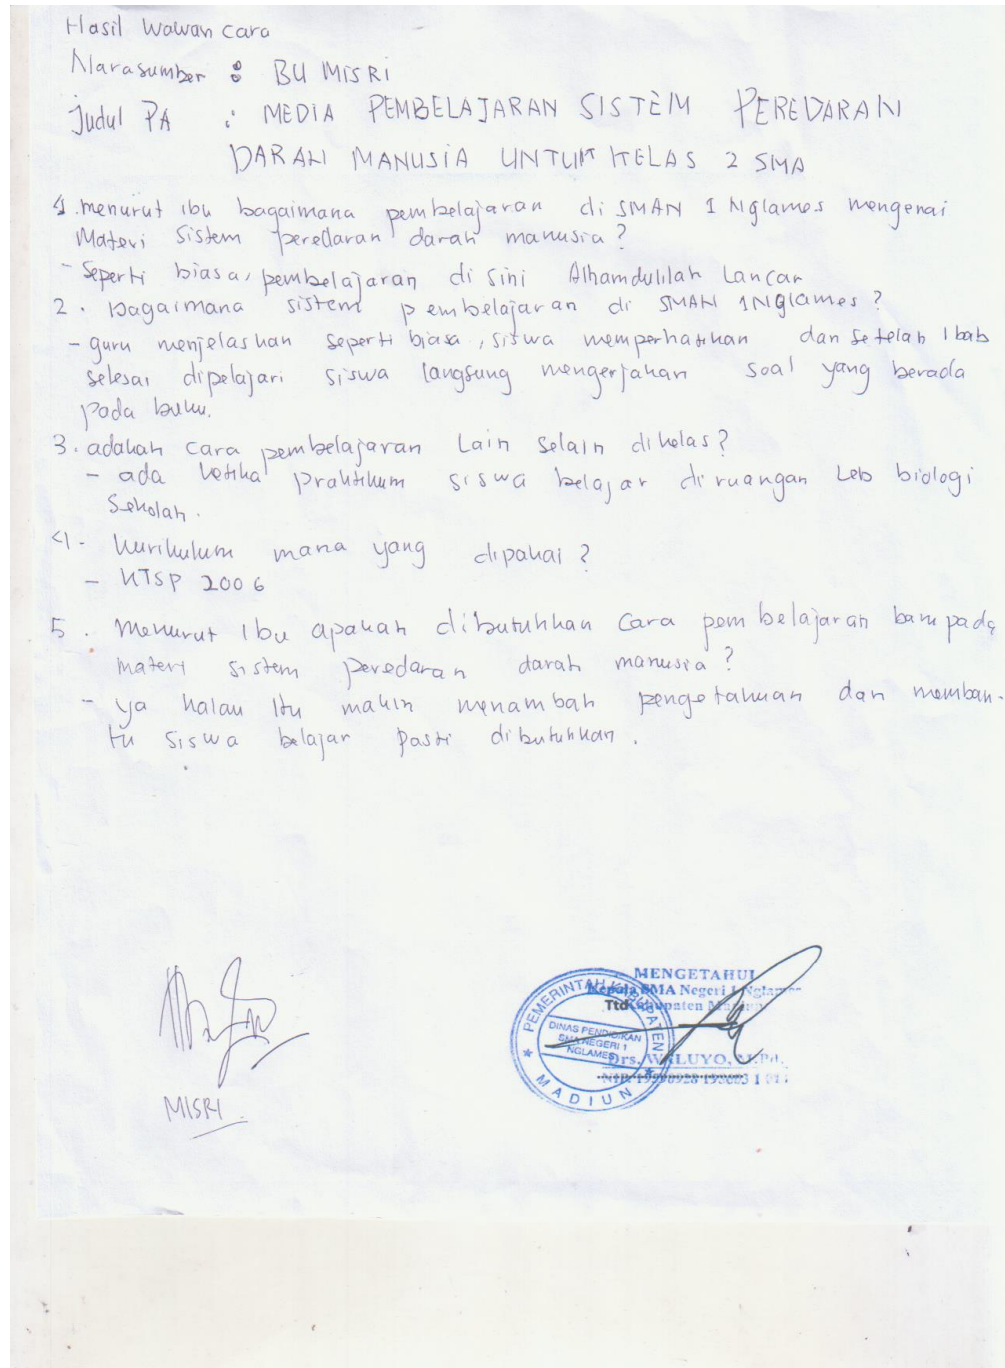 Hasil Wawan cara
Narasumber : BU MISRI
Judul PA : MEDIA PEMBELAJARAN SISTEM PEREDARAN
DARAH MANUSIA UNTUK KELAS 2 SMA
1. menurut ibu bagaimana pembelajaran di SMAN 1 Nglames mengenai
Materi sistem peredaran darah manusia?
- Seperti biasa, pembelajaran di sini Alhamdulilah Lancar
2. bagaimana sistem pembelajaran di SMAN 1 Nglames?
- guru menjelaskan seperti biasa, siswa memperhatikan dan setelah 1 bab
selesai dipelajari siswa langsung mengerjakan soal yang berada
pada buku.
3. adakah cara pembelajaran Lain selain dikelas?
- ada ketika praktikum siswa belajar diruangan Leb biologi
Sekolah.
4. Kurikulum mana yang dipakai?
- KTSP 2006
5. Menurut Ibu apakah dibutuhkan Cara pembelajaran baru pada
materi sistem peredaran darah manusia?
- ya kalau itu makin menambah pengetahuan dan memban-
tu siswa belajar pasti dibutuhkan.
MENGETAHUI
Kepala SMA Negeri 1 Nglames
Ttd Kabupaten Madiun
PEMERINTAH KABUPATEN
DINAS PENDIDIKAN
SMA NEGERI 1
NGLAMES
MADIUN
Drs. WALUYO, M.Pd.
NIP.
MISRI